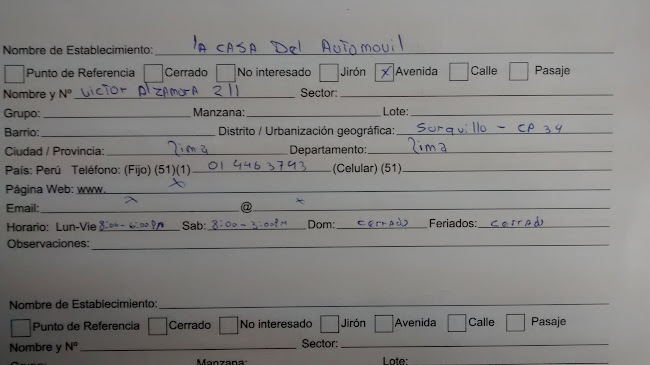 Nombre de Establecimiento: lA CASA Del Automovil
Punto de Referencia Cerrado No interesado Jirón x Avenida Calle Pasaje
Nombre y Nº VICTOR AlZAMORA 211 Sector:
Grupo: Manzana: Lote:
Barrio: Distrito / Urbanización geográfica: Surquillo - CP 34
Ciudad / Provincia: lima Departamento: lima
País: Perú Teléfono: (Fijo) (51)(1) 01 4463743 (Celular) (51)
Página Web: www. x
Email: x @ x
Horario: Lun-Vie 8:00-6:00PM Sab: 8:00-3:00PM Dom: cerrado Feriados: cerrado
Observaciones:
Nombre de Establecimiento:
Punto de Referencia Cerrado No interesado Jirón Avenida Calle Pasaje
Nombre y Nº Sector:
Grupo: Manzana: Lote: